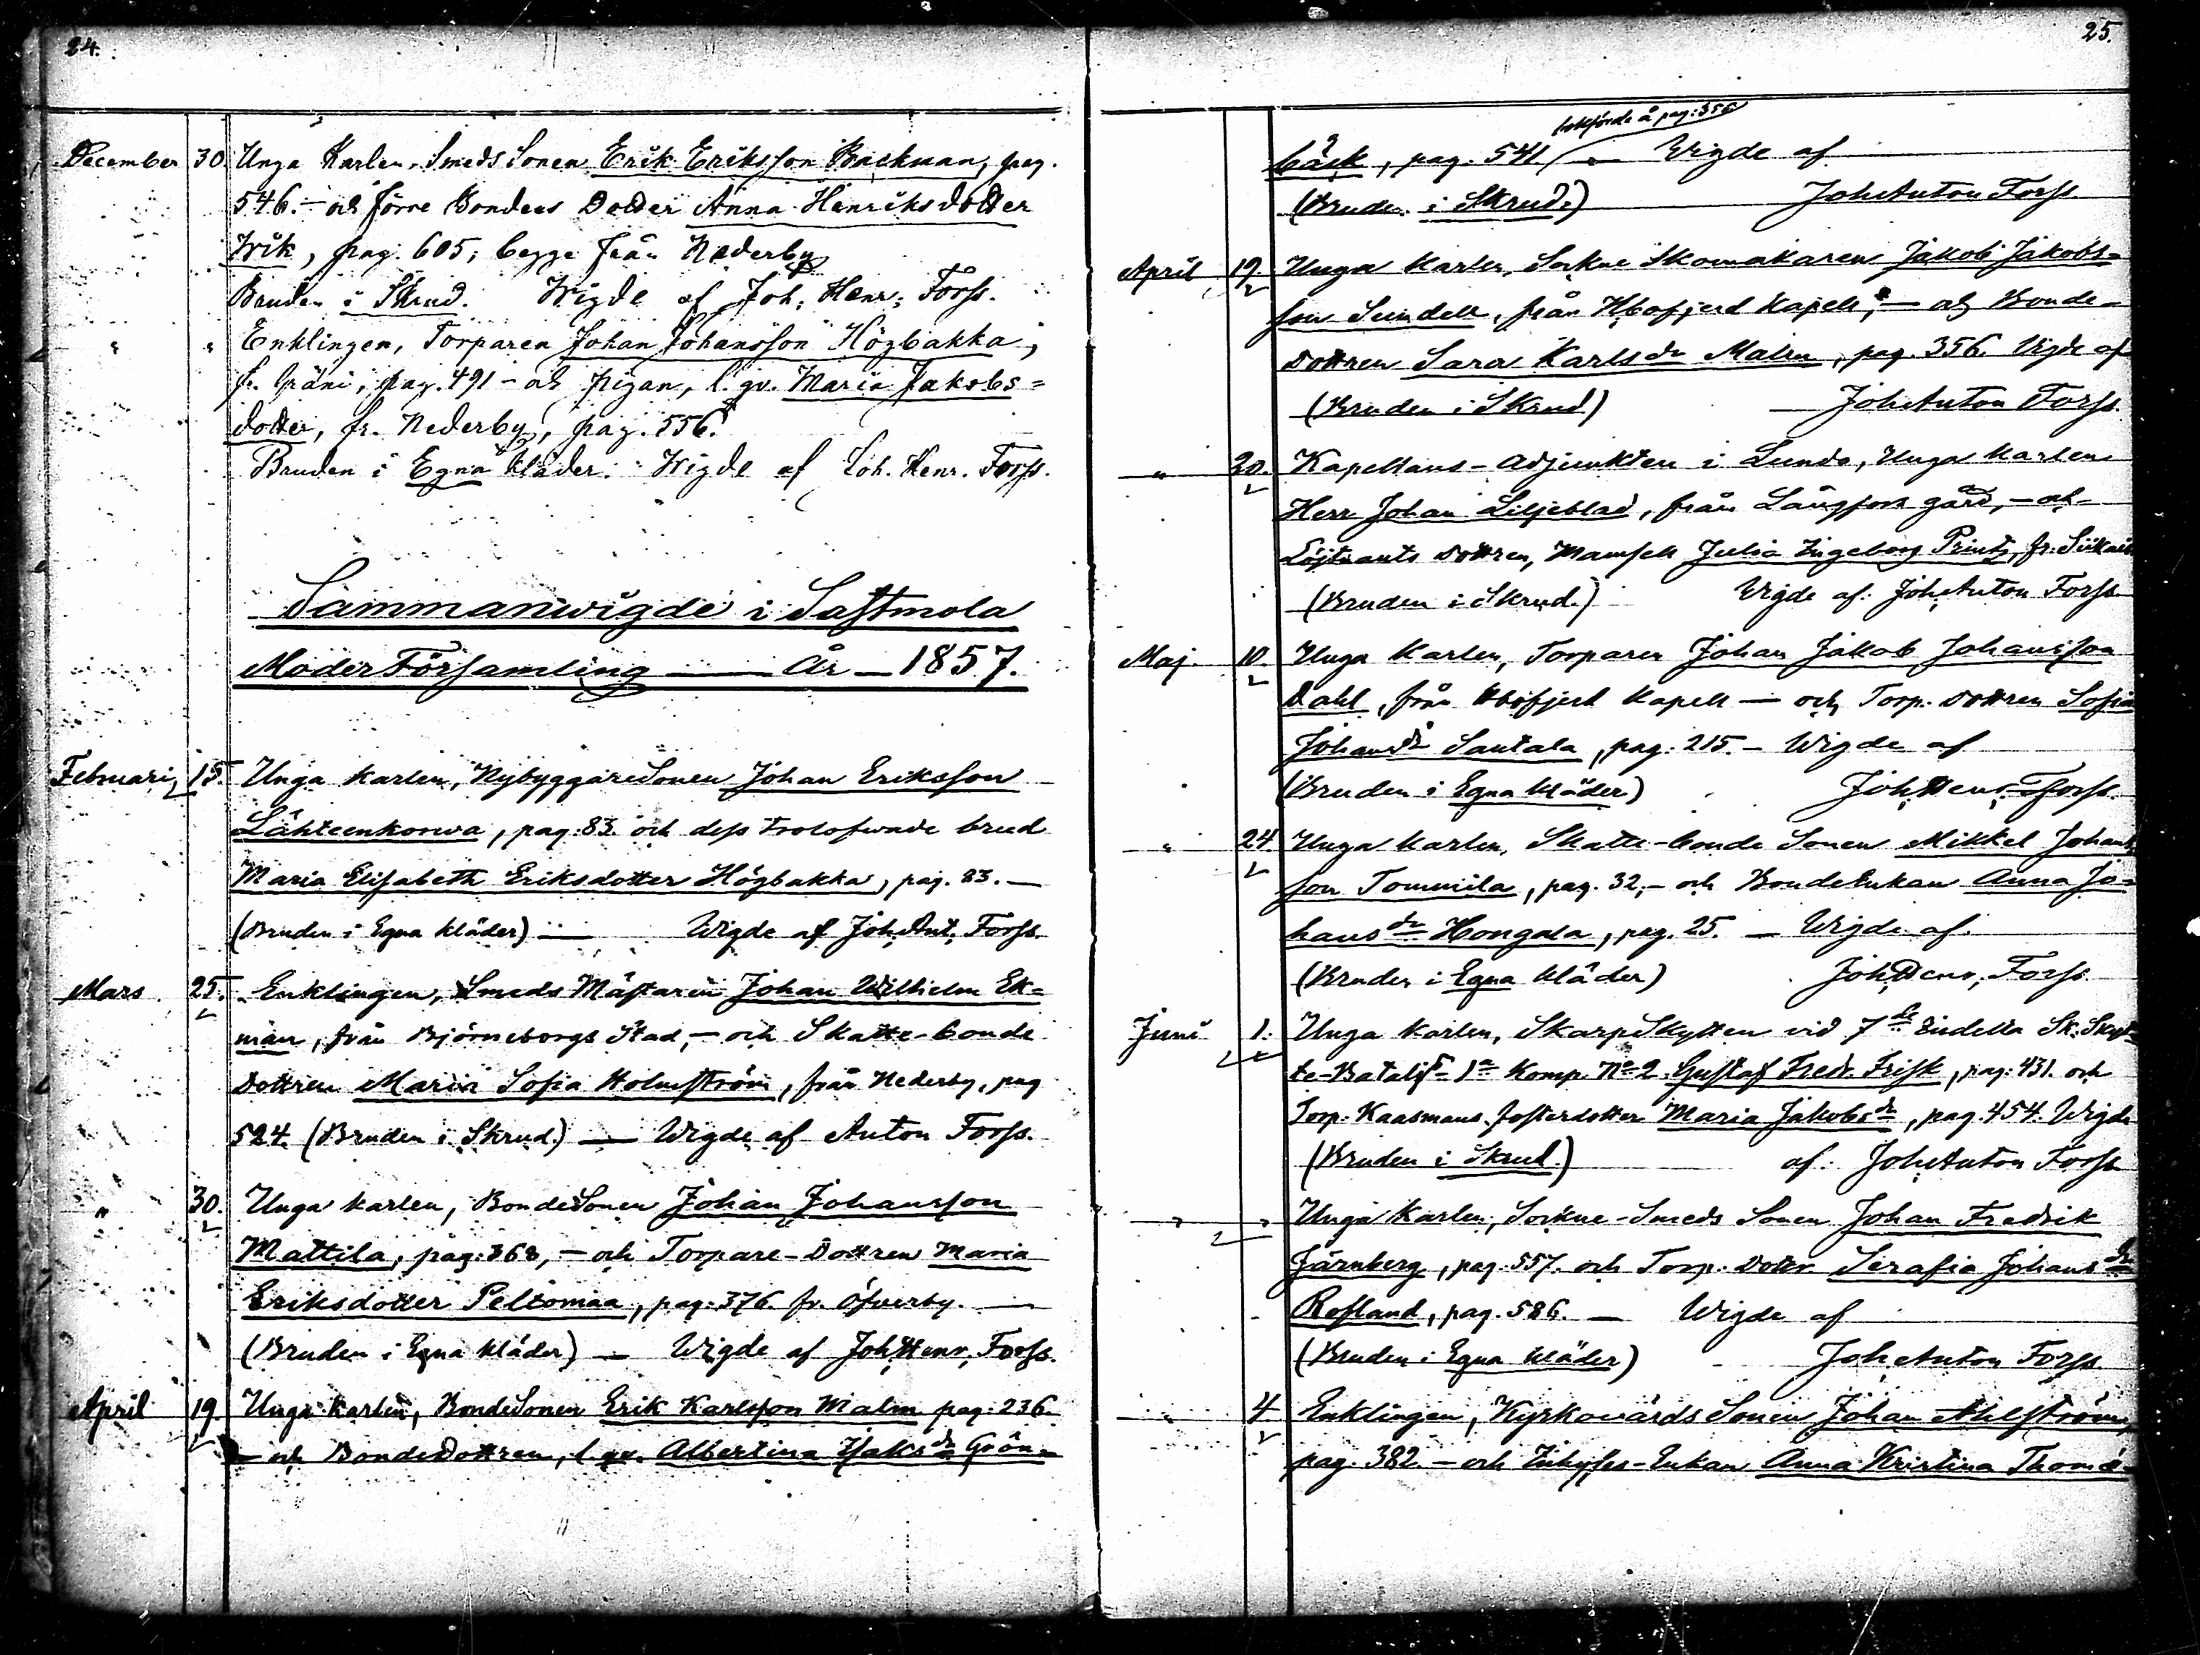 24.
December 30. Unga Karlen, Smeds Sonen Erik Eriksson Backman, pag.
546. – och förre Bondens Dotter Anna Henriksdotter
Wik, pag. 605; begge från Nederby
Bruden i Skrud. Wigde af Joh: Henr: Forss.
" " Enklingen, Torparen Johan Johansson Högbakka,
fr. Gräni, pag. 491 – och pigan, l. gv. Maria Jakobs=
dotter, fr. Nederby, pag. 556.
Bruden i Egna kläder. Wigde af Joh. Henr. Forss.
Sammanwigde i Sastmola
Moder Församling — År — 1857.
Februari, 15. Unga karlen, NybyggareSonen Johan Eriksson
Lähteenkorwa, pag: 83. och dess trolofwade brud
Maria Elisabeth Eriksdotter Högbakka, pag. 83. —
(Bruden i Egna kläder) — Wigde af Joh. Ant. Forss.
Mars 25. Enklingen, Smeds Mästaren Johan Wilhelm Ek=
man, från Björneborgs Stad, – och Skatte-bonde
Dottren Maria Sofia Holmström, från Nederby, pag
524. (Bruden i Skrud.) — Wigde af Anton Forss.
" 30. Unga karlen, BondeSonen Johan Johansson
Mattila, pag: 368, – och Torpare-Dottren Maria
Eriksdotter Peltomaa, pag: 376. fr. Öfverby. —
(Bruden i Egna kläder) — Wigde af Joh. Henr. Forss.
April 19. Unga karlen, BondeSonen Erik Karlsson Malm pag: 236.
– och BondeDottren, l. gv. Albertina Isaks dr Grön=
25.
pag: 356
bäck, pag. 541 — Wigde af
(Bruden i Skrud.) Joh. Anton Forss.
April 19. Unga Karlen, Sockne Skomakaren Jakob Jakobs=
son Sundell, från Hvofjerd Kapell, – och Bonde-
dottren Sara Karls dr Malm, pag. 356. Vigde af
(Bruden i Skrud) — Joh. Anton Forss.
" 20. Kapellans-Adjunkten i Lundo, Unga Karlen
Herr Johan Liljeblad, från Långfors gård, – och
Löjtnants dottren, Mamsell Julia Ingeborg Printz, fr.
(Bruden i Skrud.) Wigde af: Joh. Anton Forss
Maj. 10. Unga Karlen, Torparen Johan Jakob Johansson
Dahl, från Hvofjerd Kapell — och Torp. dottren Sofia
Johans dr Santala, pag: 215. – Wigde af
(Bruden i Egna kläder) Joh. Henr. Forss.
" 24. Unga karlen, Skatte-bonde Sonen Mikkel Johans
son Tommila, pag. 32, – och BondeEnkan Anna Jo=
hans dr Hongala, pag. 25. — Wigde af
(Bruden i Egna kläder) Joh. Henr. Forss.
Juni 1. Unga karlen, SkarpSkytten vid 7 de Indelta Sk: Skyt=
te-Batalj: 1 a Komp. No 2. Gustaf Fredr. Frisk, pag: 431. och
Torp: Kaasmans fosterdotter Maria Jakobs dr, pag. 454. Wigde
(Bruden i Skrud.) af: Joh. Anton Forss
" " Unga Karlen, Sockne-Smeds Sonen Johan Fredrik
Järnberg, pag. 557. och Torp. Dottr. Serafia Johans dr
Rosland, pag. 586. — Wigde af
(Bruden i Egna kläder) Joh. Anton Forss
" 4 Enklingen, Kyrkowärds Sonen Johan Ahlström,
pag. 382. – och Inhyses-Enkan Anna Kristina Thomæ-